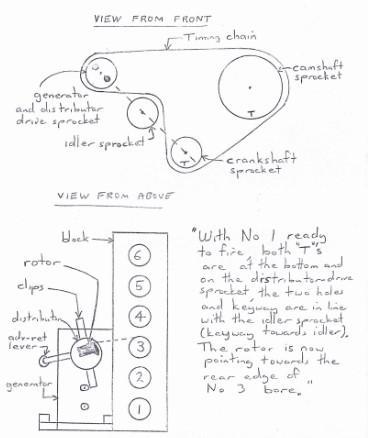 VIEW FROM FRONT
Timing chain
camshaft
sprocket
generator
and distributor
drive sprocket
idler sprocket
T
T
crankshaft
sprocket
VIEW FROM ABOVE
block
rotor
clips
distributor
adv-ret
lever
generator
6
5
4
3
2
1
"With No 1 ready
to fire both "T"'s
are at the bottom and
on the distributor drive
sprocket the two holes
and keyway are in line
with the idler sprocket
(keyway towards idler).
The rotor is now
pointing towards the
rear edge of
No 3 bore."